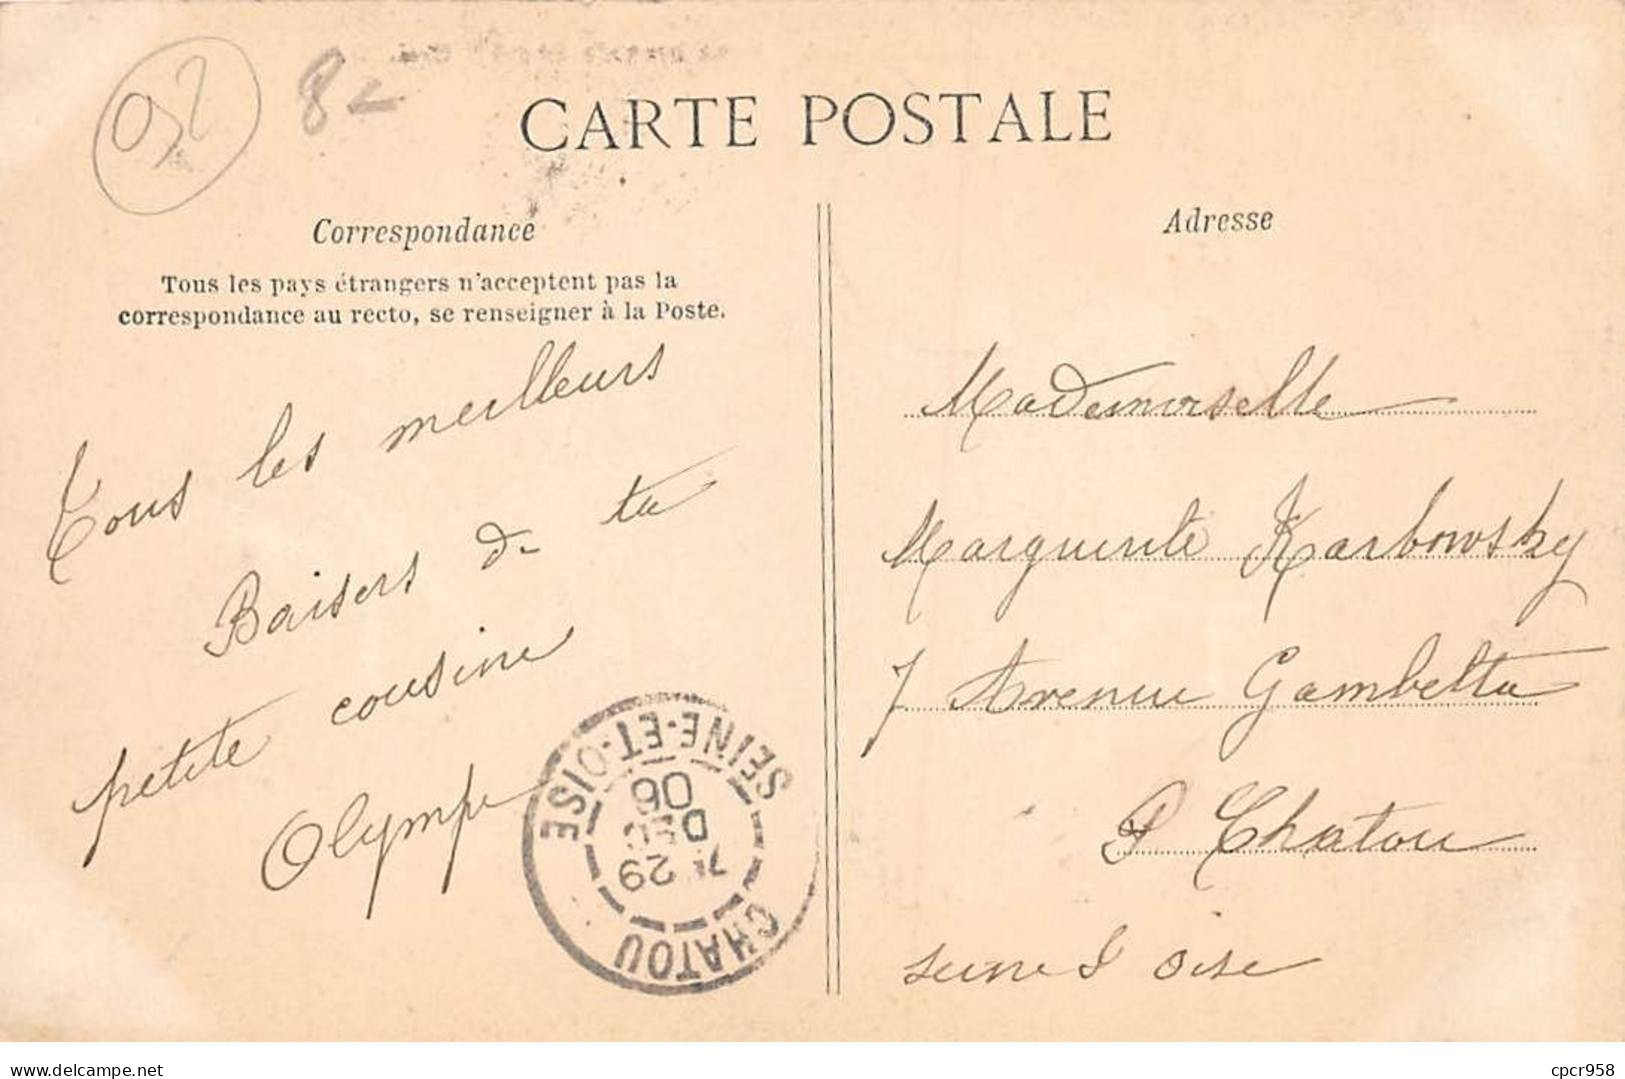 92
8
CARTE POSTALE
Correspondance
Tous les pays étrangers n'acceptent pas la
correspondance au recto, se renseigner à la Poste.
Tous les meilleurs
Baisers de ta
petite cousine
Olympe
CHATOU
SEINE-ET-OISE
29
DEC
06
Adresse
Mademoiselle
Marguerite Karbowsky
7 Avenue Gambetta
Chatou
Seine & Oise
www.delcampe.net
cpcr958